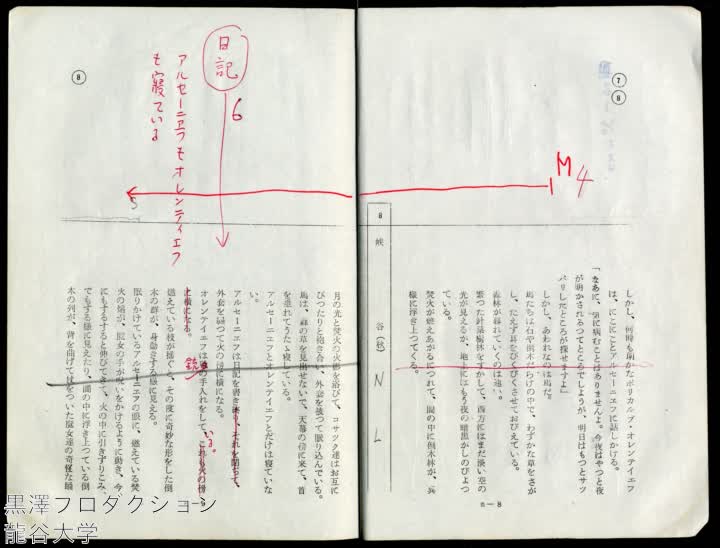 ⑦
⑧
M4
しかし、何時も朗かなポリカルプ・オレンテイエフ
は、にこにことアルセーニエフに話しかける。
「なあに、気に病むことはありませんよ。今夜はやつと夜
が明かされるつてところでしようが、明日はもつとサツ
パリしたところが探せますよ」
しかし、あわれなのは馬だ。
馬たちは石や倒木だらけの中で、わずかな草をさが
し、たえず耳をぴくぴくさせておびえている。
森林が暮れていくのは速い。
繁つた針葉樹林をすかして、西方にはまだ淡い空の
光が見えるが、地上にはもう夜の暗黒がしのびよつ
ている。
焚火が燃えあがるにつれて、闇の中に倒木林が、兵
様に浮き上つてくる。
8
峡
谷(夜)
N
L
8—8
⑧
日記
6
5
アルセーニエフもオレンティエフ
も寝ている
月の光と焚火の火影を浴びて、コサツク達はお互に
ぴつたりと抱き合い、外套を被つて眠り込んでいる。
馬は、森の草を見出せないで、天幕の傍に来て、首
を垂れてうたゝ寝している。
アルセーニエフとオレンテイエフとだけは寝ていな
い。
アルセーニエフは日記を書き終り、それを閉ぢて、
外套を被つて火の傍に横になる。
オレンテイエフは銃の手入れをして、これも火の傍
に横になる。
いる。
銃
燃えている枝が揺ぐと、その度に奇妙な形をした倒
木の群が、身動きする様に見える。
眠りかけているアルセーニエフの眼に、燃えている焚
火の焔が、魔女の手が呪いをかけるように動き、今
にもするすると伸びてきて、火の中に引きずりこみ、
でもする様に見えたり、闇の中に浮き上つている倒
木の列が、背を曲げて杖をついた魔女達の奇怪な踊
黒澤プロダクション
龍谷大学